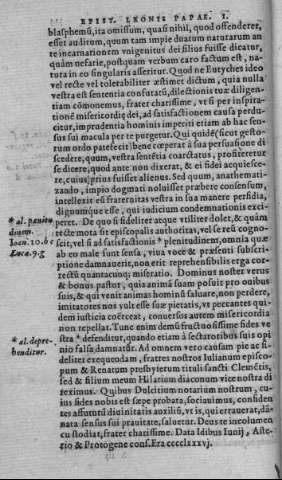 EPIST. LEONIS PAPAE. I.
blasphemū, ita omissum, quasi nihil, quod offenderet,
esset auditum, quum tam impie duarum naturarum an
te incarnationem vnigenitus dei filius fuisse dicatur,
quàm nefarie, postquam verbum caro factum est, na-
tura in eo singularis asseritur. Quod ne Eutyches ideo
vel recte vel tolerabiliter æstimet dictum, quia nulla
vestra est sententia confutatū, dilectionis tuæ diligen-
tiam cōmonemus, frater charissime, vt si per inspira-
tionē misericordię dei, ad satisfactionem causa perdu-
citur, imprudentia hominis imperiti etiam ab hac sen-
sus sui macula per te purgetur. Qui quidē (sicut gesto-
rum ordo patefecit) bene cœperat à sua persuasione di
scedere, quum, vestra sētētia coarctatus, profiteretur
se dicere, quod ante non dixerat, & ei fidei acquiesce-
re, cuius prius fuisset alienus. Sed quum, anathemati-
zando, impio dogmati noluisset præbere consensum,
intellexit eū fraternitas vestra in sua manere perfidia,
dignumque esse, qui iudicium condemnationis exci-
peret. De quo si fideliter atque vtiliter dolet, & quàm
recte mota sit episcopalis authoritas, vel se rō cogno-
scit, vel si ad satisfactionis * plenitudinem, omnia quæ
ab eo male sunt sensa, viua voce & præsenti subscri-
ptione damnauerit, non erit reprehensibilis erga cor-
rectū quantacunq; miseratio. Dominus noster verus
& bonus pastor, qui animā suam posuit pro ouibus
suis, & qui venit animas hominū saluare, non perdere,
imitatores nos vult esse suæ pietatis, vt peccantes qui-
dem iustitia coërceat, conuersos autem misericordia
non repellat. Tunc enim demū fructuosissime fides ve
stra * defenditur, quando etiam à sectatoribus suis opi
nio falsa damnatur. Ad omnem vero causam pie ac fi-
deliter exequendam, fratres nostros Iulianum episco-
pum & Renatum presbyterum tituli sancti Clemētis,
sed & filium meum Hilarium diaconum vice nostra di
reximus. Quibus Dulcitium notarium nostrum, cu-
ius fides nobis est sæpe probata, sociauimus, confiden
tes affuturū diuinitatis auxiliū, vt is, qui errauerat, dā-
nata sensus sui prauitate, saluetur. Deus te incolumem
custodiat, frater charissime. Data Idibus Iunij, Aste-
rio & Protogene cons. Era cccclxxxvj.
* al. pœnitu
dinem.
Ioan. 10. b c
Luca. 9. g
* al. depre-
henditur.